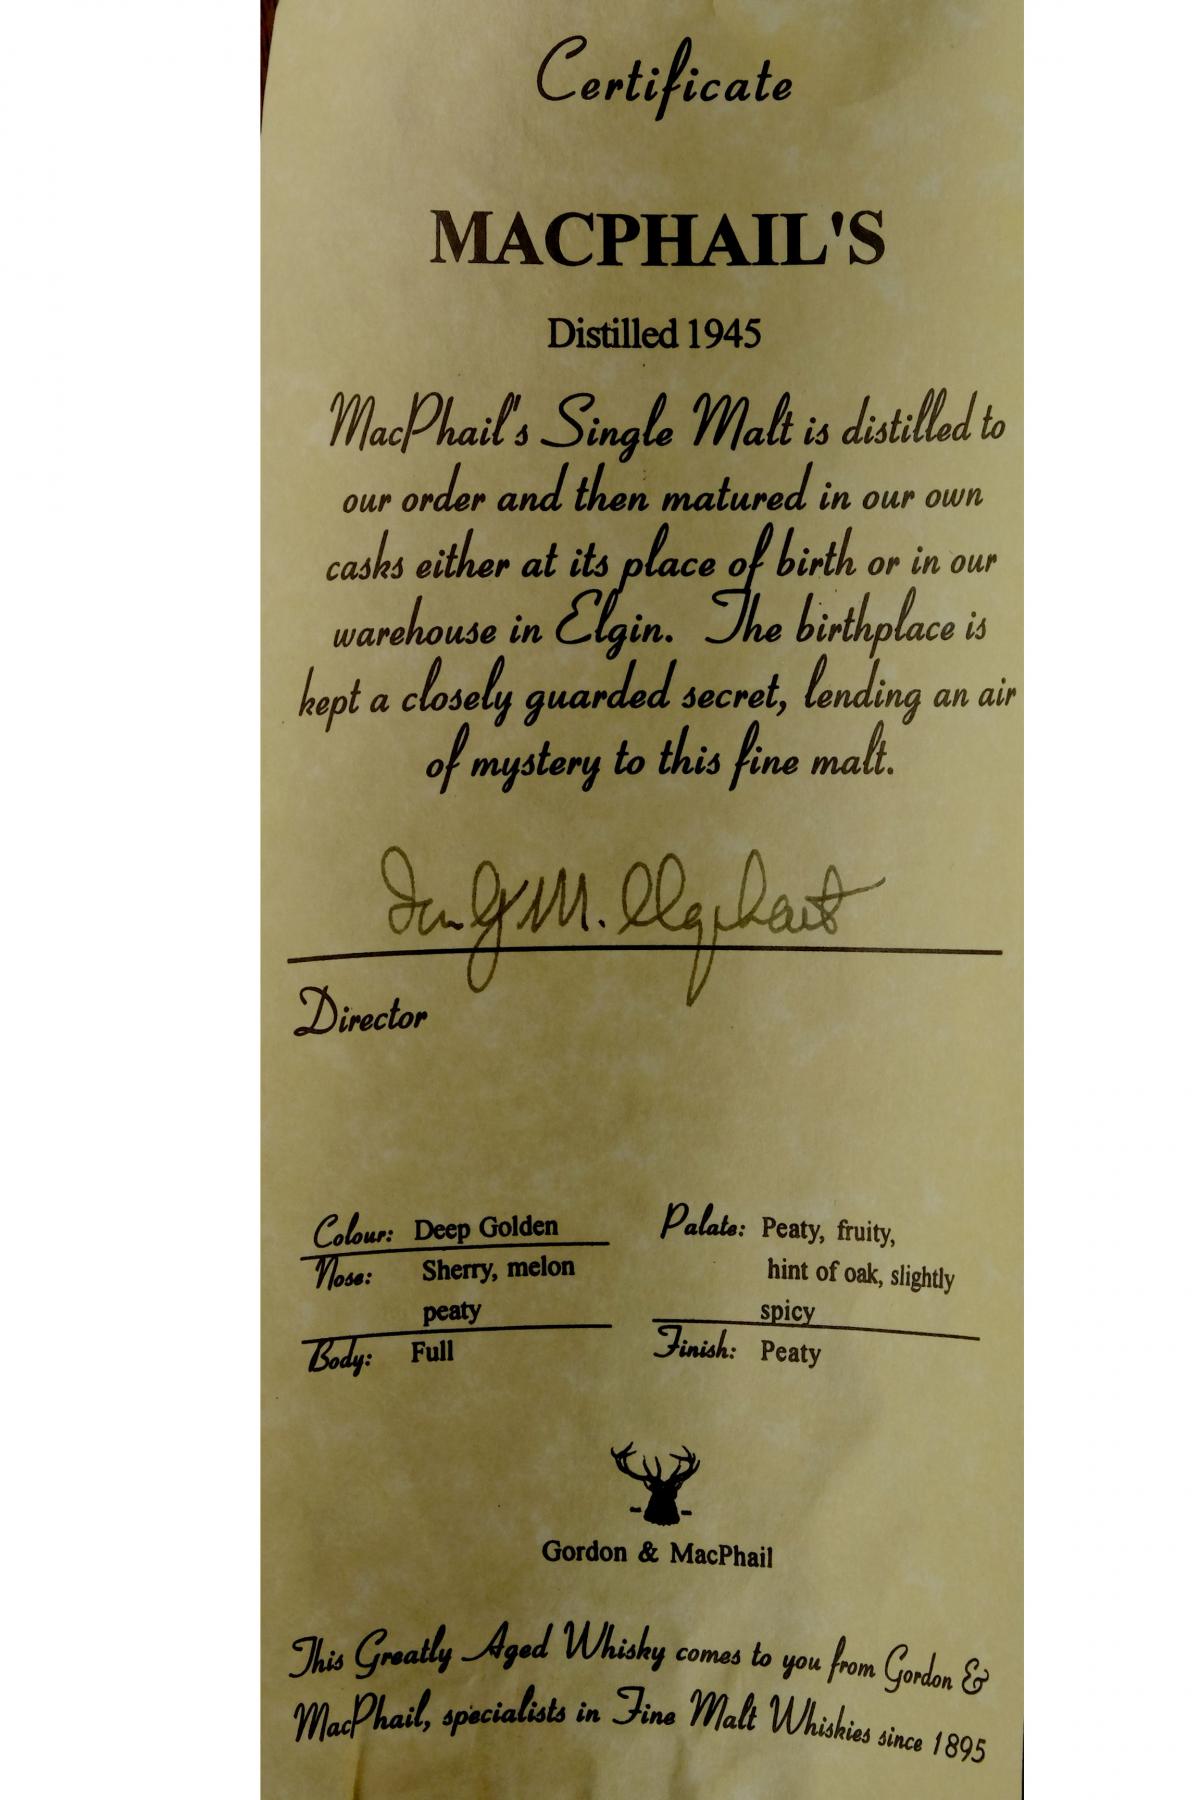 Certificate
MACPHAIL'S
Distilled 1945
MacPhail's Single Malt is distilled to
our order and then matured in our own
casks either at its place of birth or in our
warehouse in Elgin. The birthplace is
kept a closely guarded secret, lending an air
of mystery to this fine malt.
Director
Colour: Deep Golden
Nose: Sherry, melon
peaty
Body: Full
Palate: Peaty, fruity,
hint of oak, slightly
spicy
Finish: Peaty
Gordon & MacPhail
This Greatly Aged Whisky comes to you from Gordon &
MacPhail, specialists in Fine Malt Whiskies since 1895